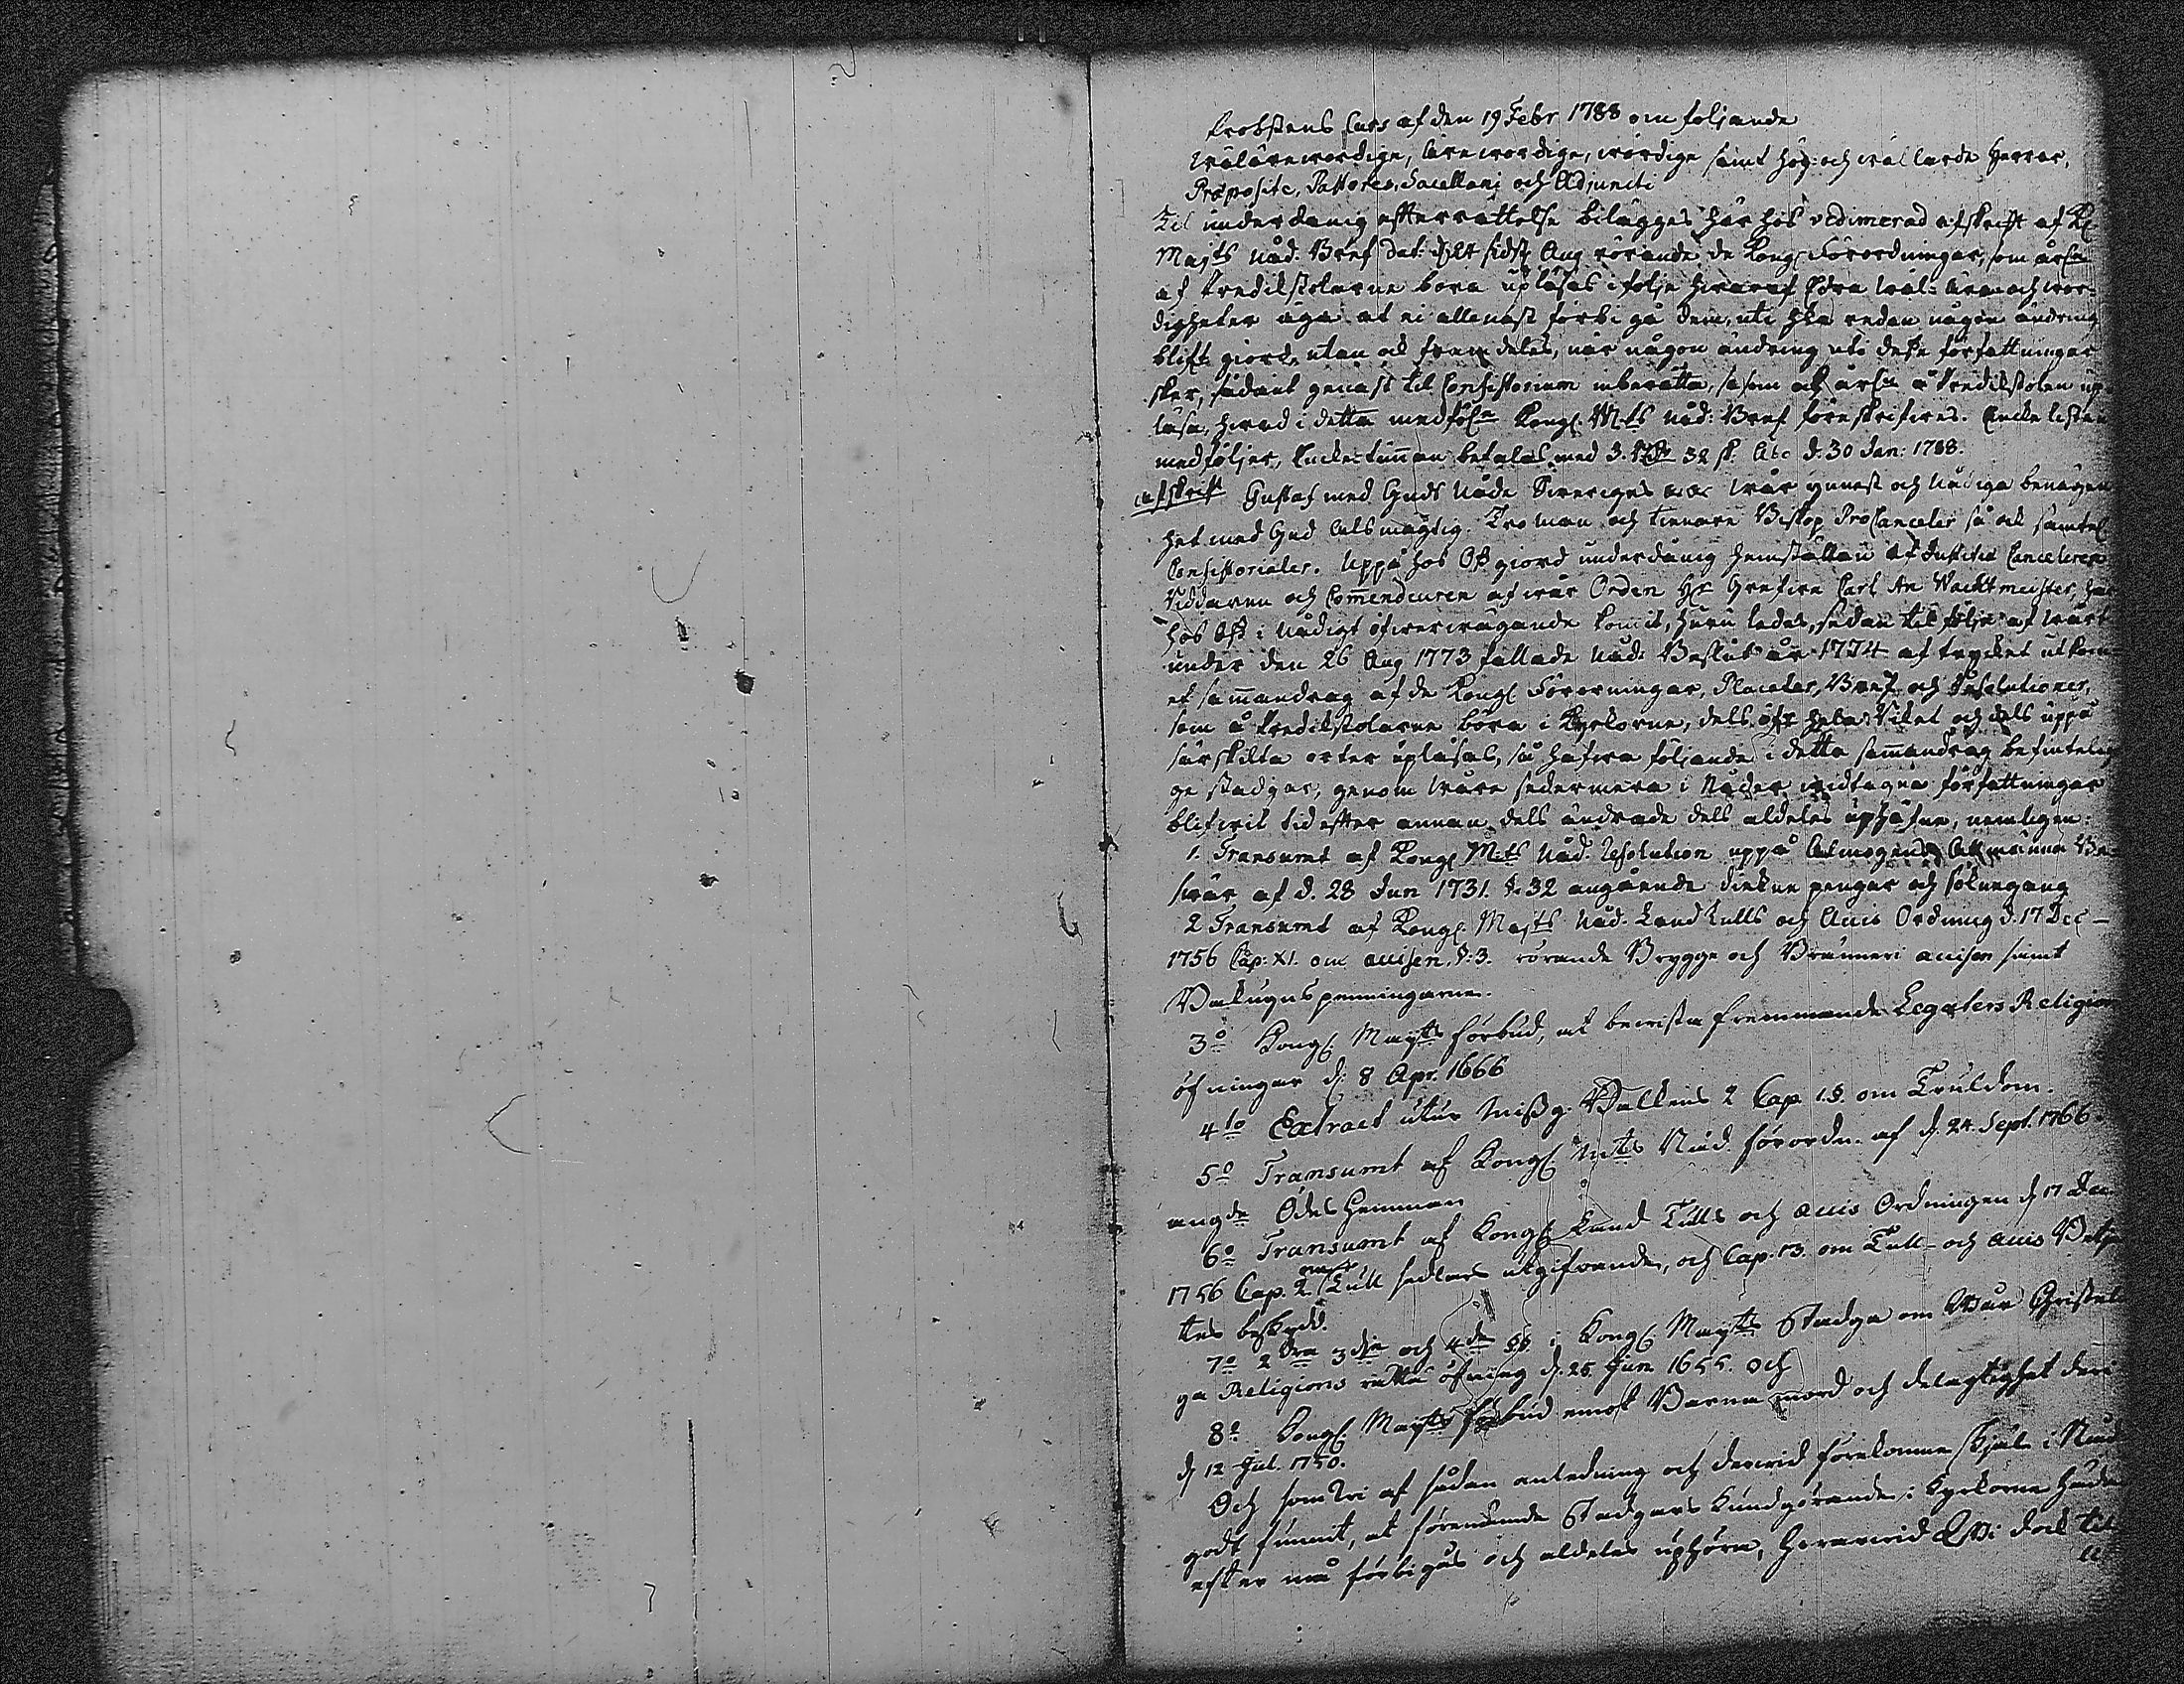 Probstens Curs af den 19 Febr 1788 om följande
Wälärewördige, Ärewördige, wördige samt hög- och wällärde Herrar,
Præposite, Pastores, Sacellani och Adjuncti
Til underdånig efterrättelse bilägges här hos vedimerad afskrift af K.
Majts Nåd. Bref dat. sidstl Aug rörande de Kongl Förordningar, som årl.
af Predikstolarne böra upläsas i följe hwaraf Edra Wäl- Äre- och wör-
digheter äga at ei allenast förbi gå dem, uti hka redan någon ändring
blifit giord, utan ock fram deles, när någon ändring uti desse författningar
sker, sådant genast til Consistorium inberätta, såsom ock årl å Predikstolen up-
läsa, hwad i detta medföl. Kongl. Mts Nåd. Bref föreskrifwes. listan
medföljer, tunnan betales med 3. Rdr 32 sk. Abo d. 30 Jan: 1788.
Afskrift Gustaf med Guds Nåde Sweriges &c &c Wår ynnest och Nådiga benägen
het med Gud Alsmägtig. Tro man och tienare Biskop, ProCanceler så ock samtel
Consistorialer. Uppå hos Oss giord underdånig hemställan af Justitiæ Canceleren
Riddaren och Com̄endeuren af wår Orden Hr Grefwe Carl Ax Wachtmeister, har
hos Oss i Nådigt öfwerwägande komit, huru ledes, sedan til följe af wårt
under den 26 Aug 1773 fattade Nåd: Beslut år 1774 af trycket utkom
et sam̄andrag af de Kongl Förorningar, Placater, Bref och Resolutioner,
som å Predikstolarne böra i Kyrkorne, dels öfr hela Riket och dels uppå
särskilta orter upläsas, så hafwa följande i detta sam̄andrag befintelig
ge stadgar, genom Wåre sedermera i Nåder widtagna författningar
blifwit tid efter annan dels ändrade dels aldeles uphäfne, nemligen:
1. Transumt af Kongl Mts Nåd. Resolution uppå Almogens Allmänna Be-
swär af d. 28 Jun 1731. §. 32 angående diekne pengar och söknegang
2 Transumt af Kongl. Majts Nåd. Land tulls och Accis Ordning d. 17 Dec
1756 Cap: XI. om accisen. §: 3. rörande Brygge och Bränneri accisen samt
Bakugns penningarne.
3o Kongl. Mayts förbud, at bewista fremmande Legaters Religions
öfningar d: 8 Apr. 1666
4to Extract utur Missg. Balkens 2 Cap. 1.§. om Truldom.
5o Transumt af Kongl Mts Nåd. förordn. af d. 24 Sept. 1766
angde Ödes Hemman
6o Transumt af Kongl Land Tulls och accis Ordningen d 17 Dec
1756 Cap. 2. om Tull sedlars utgifwande, och Cap. 13. om Tull- och accis Betjen
tes beskydd.
7o 2dra 3dje och 4de §§. i Kongl. Mayts Stadga om Wår Christel
ga Religions rätta öfning d. 25 Jun 1655. och
8o Kongl. Mayts förbud emot Barna mord och delagtighet deri
d 12 Jul. 1750.
Och som Wi af sådan anledning och derwid förekomne skjäl i Nåd
godt funnit, at förenämde Stadgars kundgörande i Kyrkorne hädan
efter må förbigås och aldeles uphöra, herwid Wi dock til